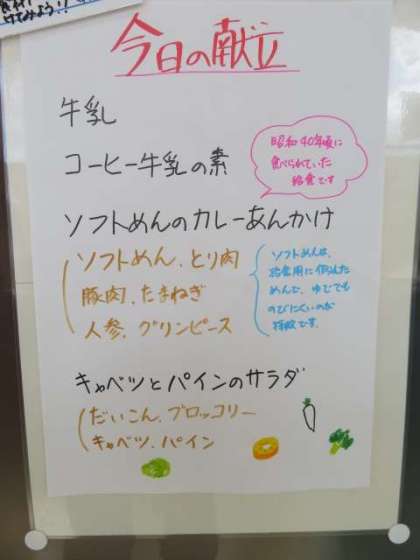 けてみよう!!
今日の献立
牛乳
コーヒー牛乳の素
昭和40年頃に
食べられていた
給食です
ソフトめんのカレーあんかけ
ソフトめん、とり肉
豚肉、たまねぎ
人参、グリンピース
ソフトめんは、
給食用に作られた
めんで、ゆでても
のびにくいのが
特徴です。
キャベツとパインのサラダ
だいこん、ブロッコリー
キャベツ、パイン